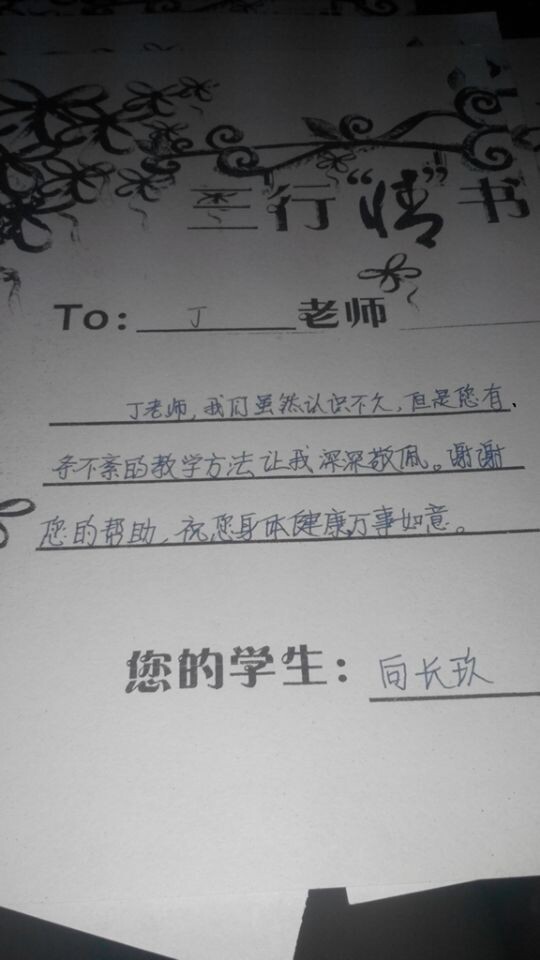 三行“情”书
To: 丁 老师
丁老师,我们虽然认识不久,但是您有
条不紊的教学方法让我深深敬佩。谢谢
您的帮助,祝您身体健康万事如意。
您的学生: 向长玖